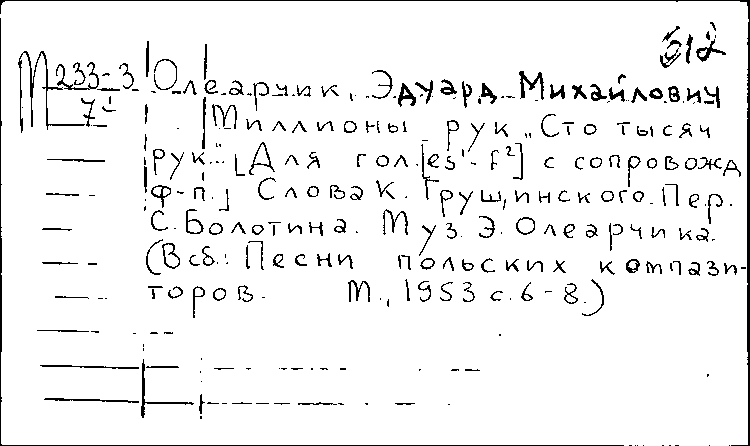 512
М 233-3 Олеарчик, Эдуард Михайлович
7і Миллионы рук „Сто тысяч
рук..." [Для гол. [es¹-f²] с сопровожд
ф-п.] Слова К. Грушчинского. Пер.
С. Болотина. Муз. Э. Олеарчика.
(В сб.: Песни польских компази-
торов. М., 1953 с. 6-8.)